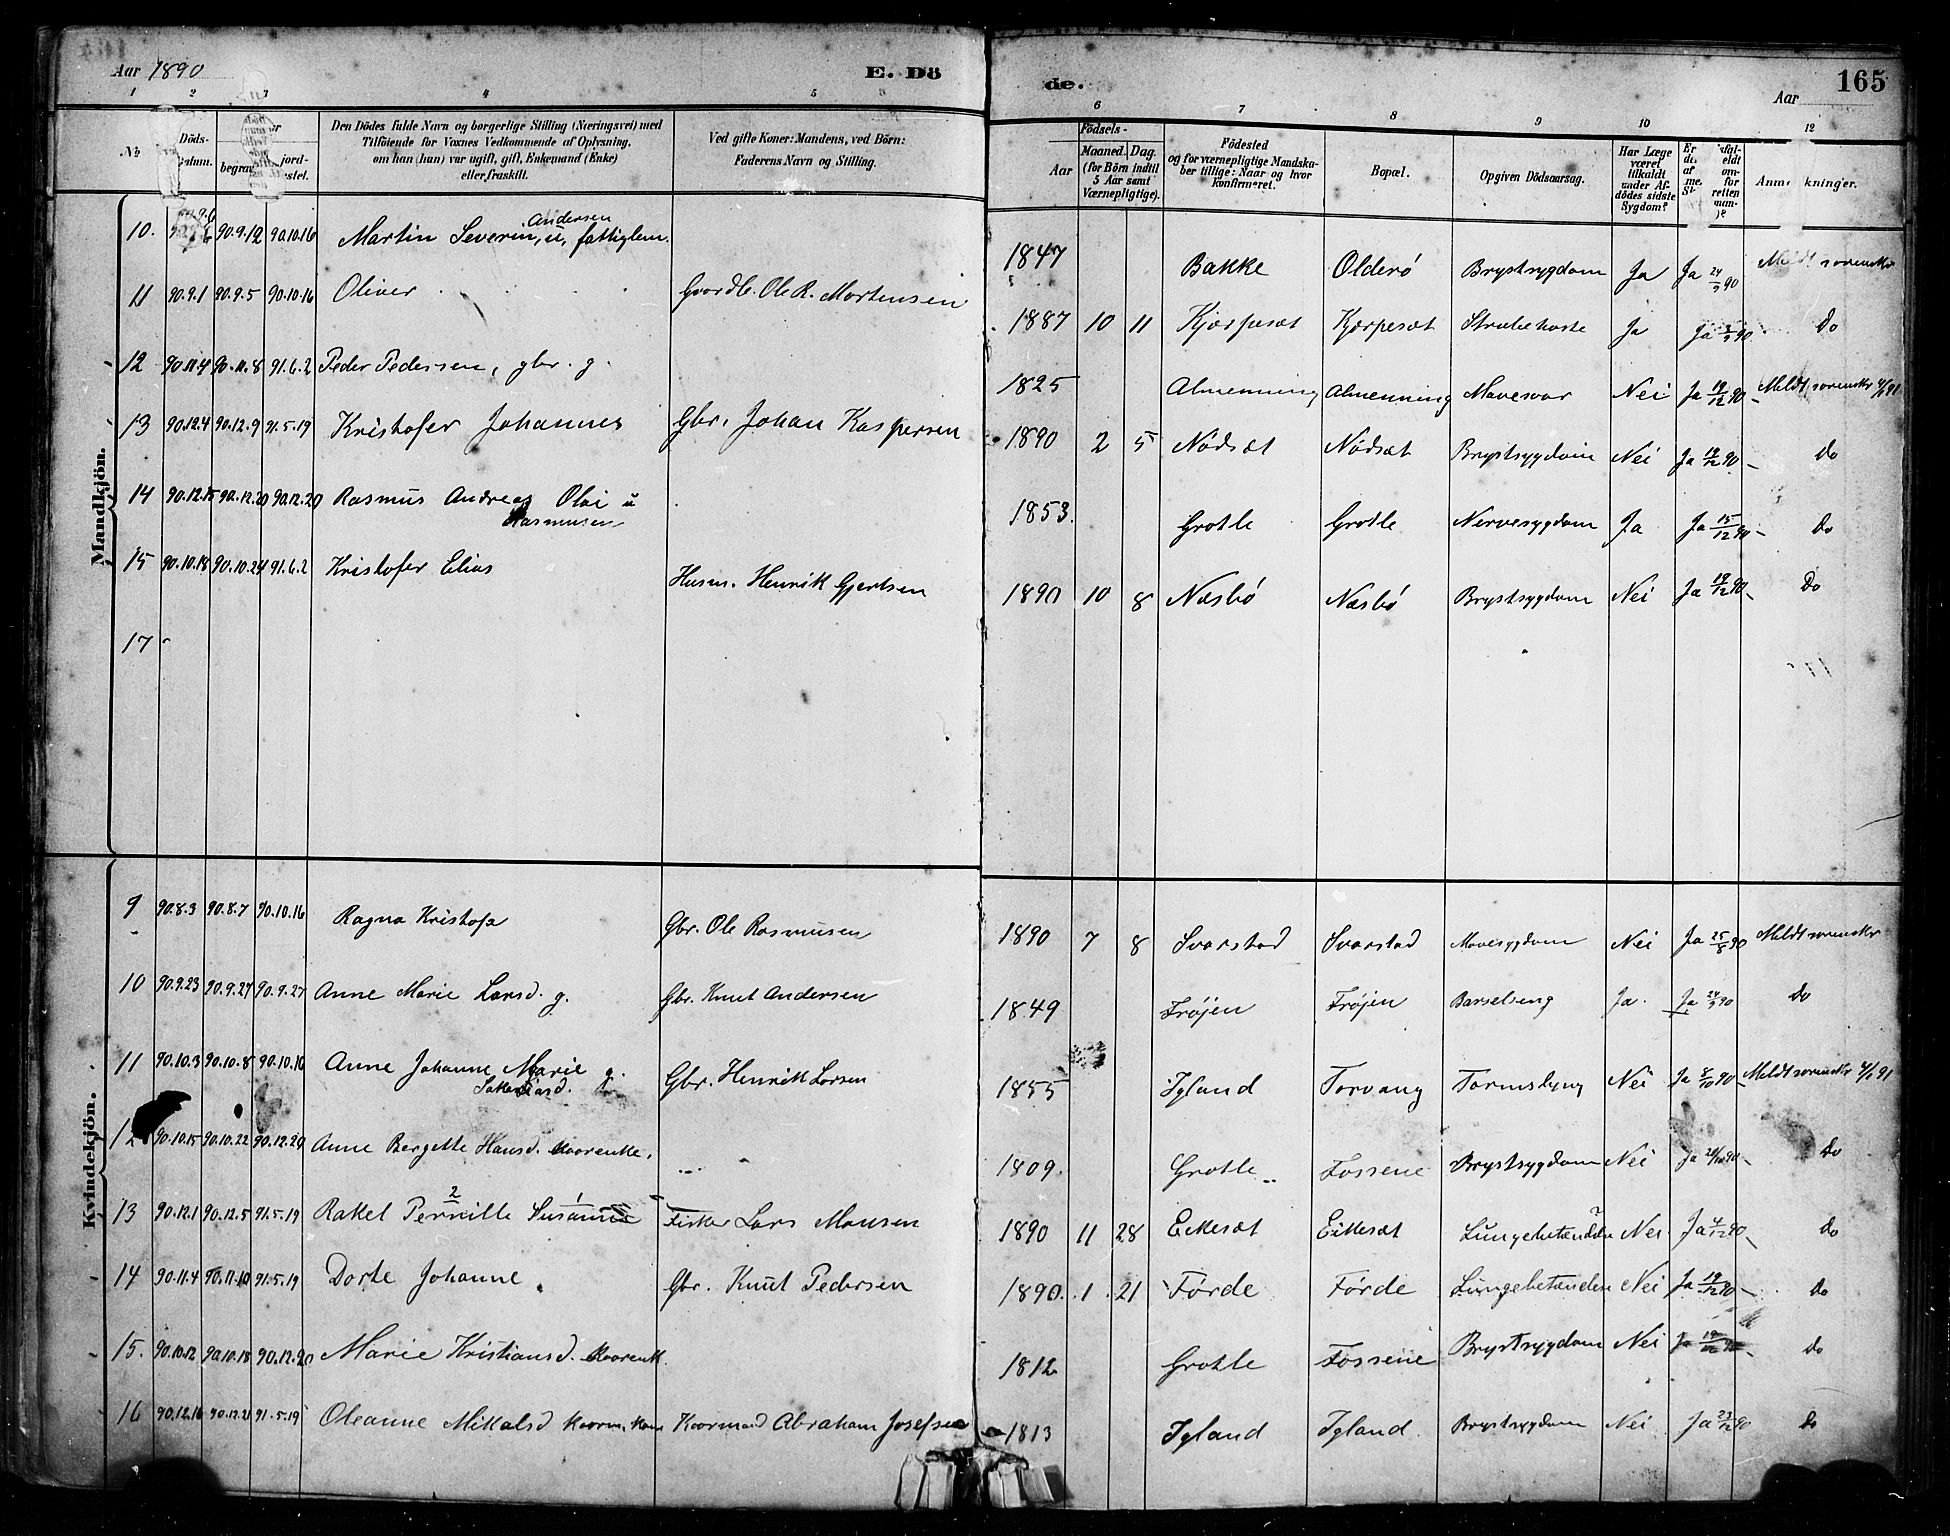 Aar 1890 E. Dö de. Aar 165
1 2 3 4 5 6 7 8 9 10 12
No
Döds-
begrav
jord-
Den Dödes fulde Navn og borgerlige Stilling (Næringsvei) med
Tilföiende for Voxnes Vedkommende af Oplysning,
om han (hun) var ugift, gift, Enkemand (Enke)
eller fraskilt.
Ved gifte Koner: Mandens, ved Börn:
Faderens Navn og Stilling.
Födsels-
Aar
Maaned. Dag.
(for Börn indtil
5 Aar samt
Værnepligtige).
Födested
og for værnepligtige Mandska-
ber tillige: Naar og hvor
konfirmeret.
Bopæl.
Opgiven Dödsaarsag.
Har Læge
været
tilkaldt
under Af-
dödes sidste
Sygdom?
Anm kninger.
Mandkjön.
10. 90.9.6 90.9.12 90.10.16 Martin Severin Andersen, u, fattiglem. 1847 Bakke Olderø Brystsygdom Ja Ja 24/9 90 Meldt sorenskr
11 90.9.1 90.9.5 90.10.16 Oliver Gaardb. Ole R. Mortensen 1887 10 11 Kjærpesæt Kjærpesæt Strubehoste Ja Ja 90 Do
12 90.11.4 90.11.8 91.6.2 Peder Pedersen, gbr. g. 1825 Almenning Almenning Mavesaar Nei Ja 19/12 90 Meldt sorenskr
13 90.12.4 90.12.9 91.5.19 Kristofer Johannes Gbr. Johan Kaspersen 1890 2 5 Nødsæt Nødsæt Brystsygdom Nei Ja 19/12 90 Do
14 90.12.15 90.12.20 90.12.20 Rasmus Andreas Olai u
Rasmussen 1853. Grotle Grotle Nervesygdom Ja Ja 15/12 90 Do
15 90.10.18 90.10.24 91.6.2 Kristofer Elias Husm. Henrik Gjertsen 1890 10 8 Næsbø Næsbø Brystsygdom Nei Ja 19/12 90 Do
17
Kvindekjön.
9 90.8.3 90.8.7 90.10.16 Ragna Kristofa Gbr. Ole Rasmusen 1890 7 8 Svarstad Svarstad Mavesygdom Nei Ja 25/8 90 Meldt sorenskr
10 90.9.23 90.9.27 90.9.27 Anne Marie Larsd. g. Gbr. Knut Andersen 1849 Frøjen Frøjen Barselseng Ja. Ja 24/9 90 Do
11 90.10.3 90.10.8 90.10.16 Anne Johanne Marie g.
Sakariasd. Gbr. Henrik Larsen 1855 Igland Torvang Nei Ja 8/10 90 Meldt sorenskr
12 90.10.15 90.10.22 90.12.20 Anne Bergette Hansd. kaarenke. 1809. Grotle Fossene Brystsygdom Nei Ja 90 Do
13 90.12.1 90.12.5 91.5.19 Rakel Pernille Susanne Fisker Lars Monsen 1890 11 28 Eikesæt Eikesæt Lungebetændelse Nei Ja 4/12 90 Do
14 90.11.4 90.11.10 91.5.19 Dorte Johanne Gbr. Knut Pedersen 1890. 1 21 Førde Førde Lungebetændelse Nei Ja 19/12 90 Do
15. 90.10.12 90.10.18 90.12.20 Marie Kristiansd. kaarenk. 1812 Grotle Fossene Brystsygdom Nei Ja 90 Do
16 90.12.16 90.12.21 91.5.19 Oleanne Mikalsd kaarm. kone Kaarmand Abraham Josefsen 1813 Igland Igland. Brystsygdom Nei Ja 23/12 90 Do